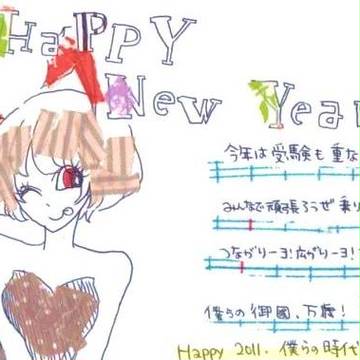 HaPPY
New Year
今年は受験も重な
みんなで頑張ろうぜ 乗り
つながりーヨ!広がりーヨ!
僕らの御國、万歳!
Happy 2011. 僕らの時代